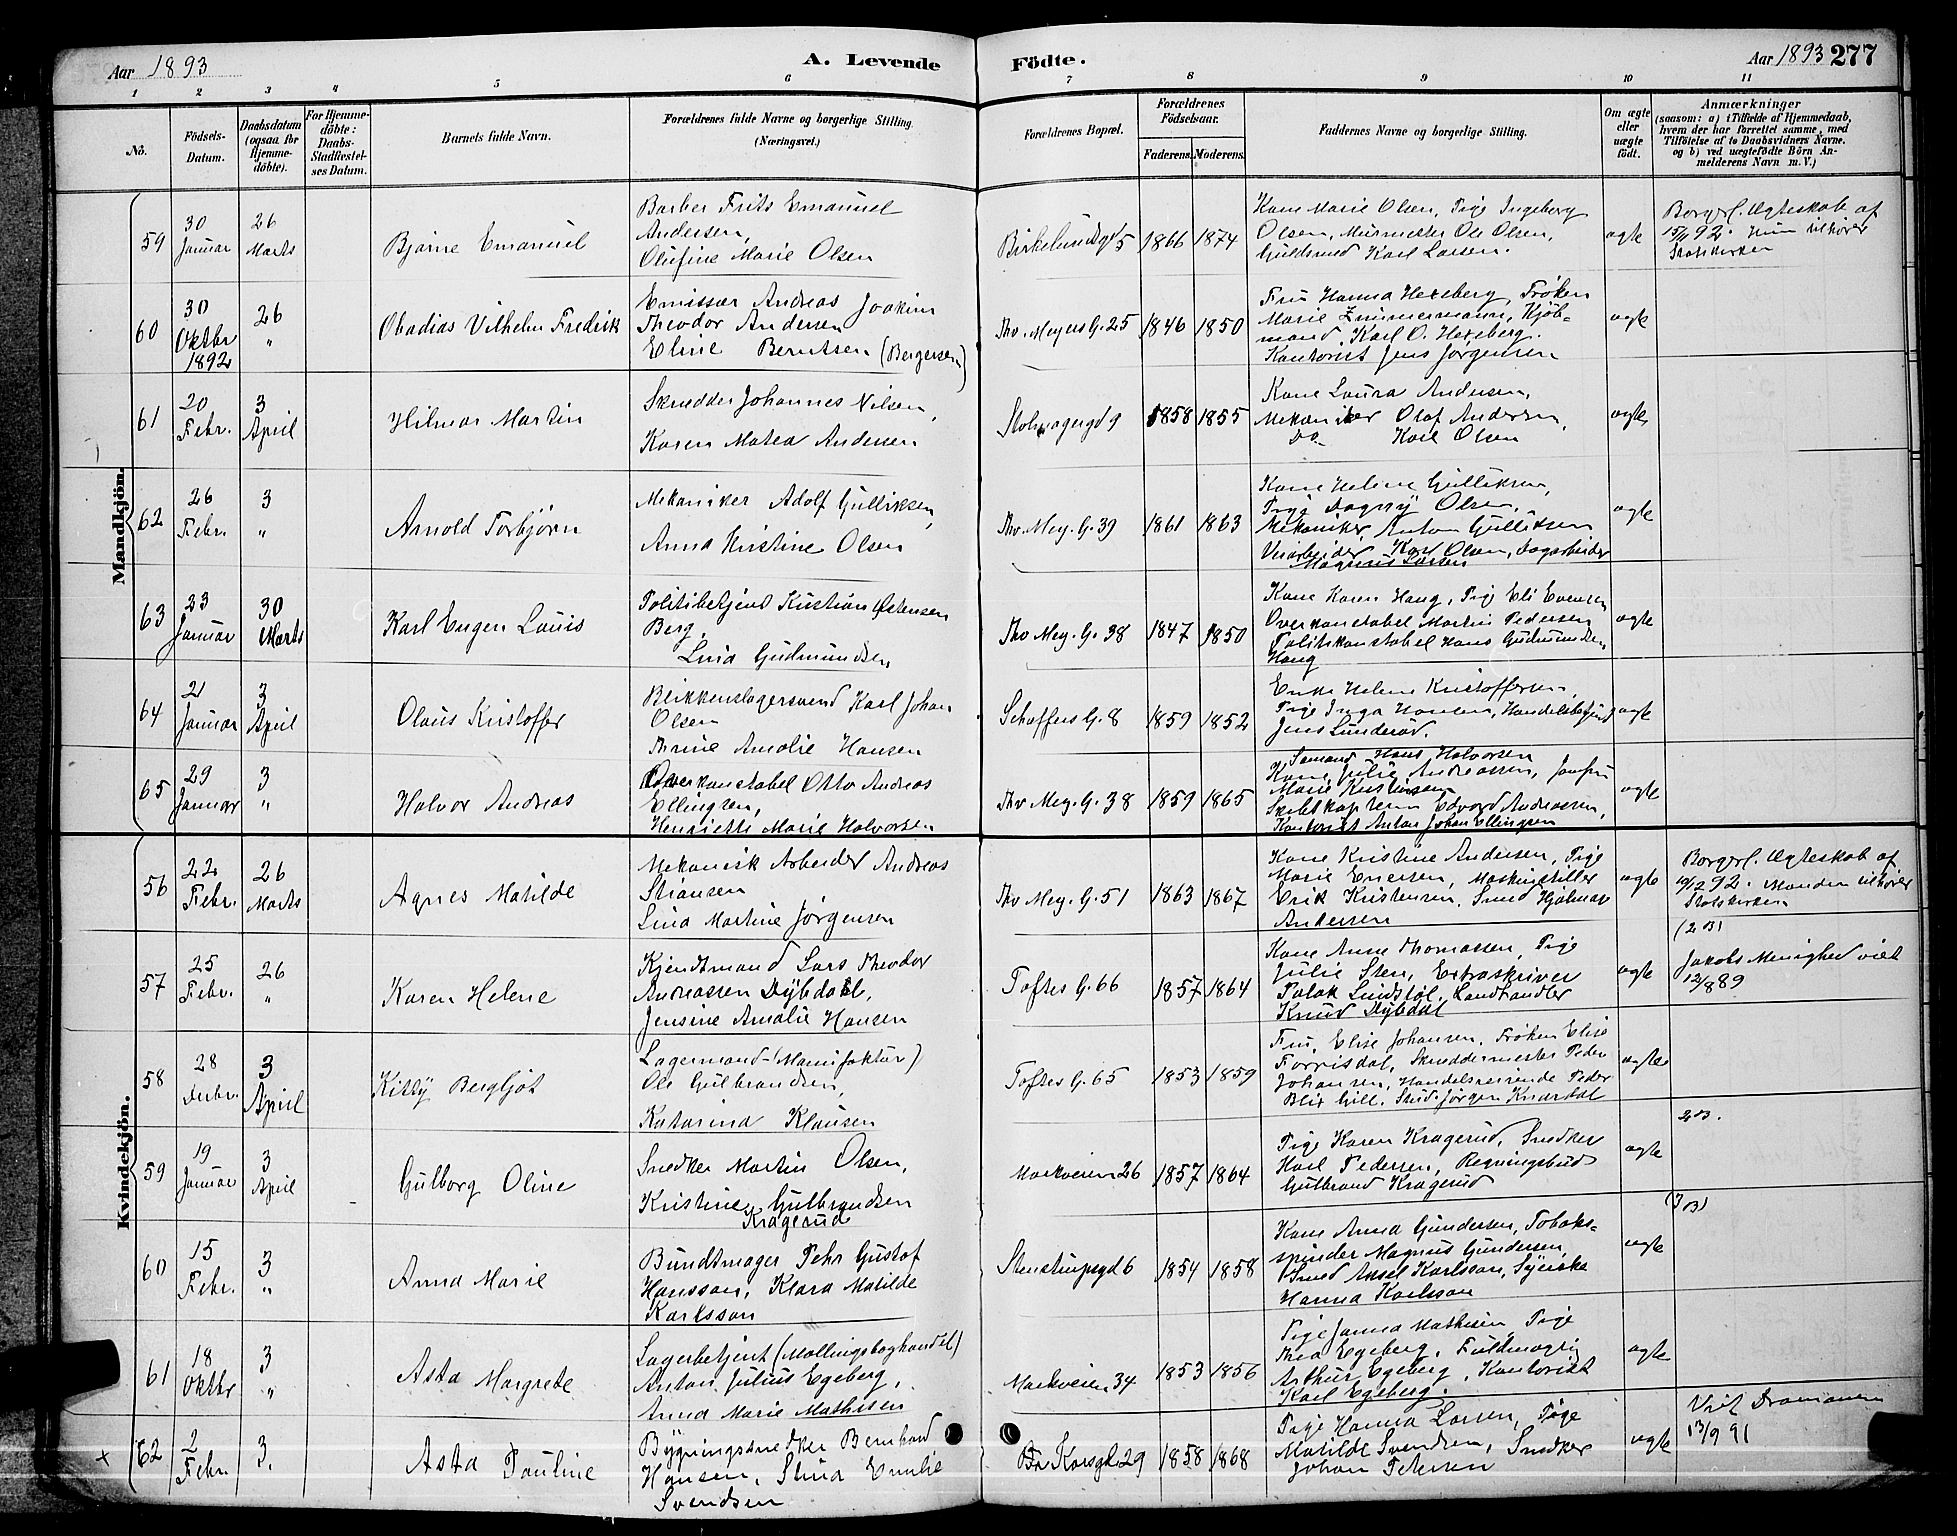 Aar 1893
A. Levende Fødte.
Aar 1893 277
1 2 3 4 5 6 7 8 9 10 11
No.
Födsels-Datum.
Daabsdatum (ogsaa for Hjemme-döbte).
For Hjemme-döbte: Daabs-Stadfestel-ses Datum.
Barnets fulde Navn.
Forældrenes fulde Navne og borgerlige Stilling. (Næringsvei.)
Forældrenes Bopæl.
Forældrenes Födselsaar.
Faderens. Moderens.
Faddernes Navne og borgerlige Stilling.
Om ægte eller uægte födt.
Anmærkninger
(saasom: a) i Tilfælde af Hjemmedaab,
hvem der har forrettet samme, med
Tilföielse af to Daabsvidners Navne.
og b) ved uægtefödte Börn An-
melderens Navn m. V.)
Mandkjön.
59
30 Januar
26 Marts
Bjarne Emanuel
Barber Frits Emanuel
Andersen,
Olufine Marie Olsen
Birkelundsgd 5
1866 1874
Kone Marie Olsen, Pige Ingeborg
Olsen, Murmester Ole Olsen,
Guldsmed Karl Larsen.
ægte
Borgerl. Ægteskab af
15/11 92. Hun tilhører
Statskirken
60
30 Oktbr 1892
26 "
Obadias Vilhelm Fredrik
Emissær Andreas Joakim
Theodor Andersen
Eline Berntsen (Bergersen)
Thv. Meyers G. 25
1846 1850
Fru Hanna Hexeberg, Frøken
Marie Zimmermann, Kjøb-
mand Karl O. Hexeberg.
Kontorist Jens Jørgensen
ægte
61
20 Febr.
3 April
Hilmar Martin
Skrædder Johannes Nilsen,
Karen Matea Andersen
Stolmagergd 9
1858 1855
Kone Laura Andersen,
Mekaniker Olaf Andersen,
Do Karl Olsen
ægte
62
26 Febr.
3 "
Arnold Torbjørn
Mekaniker Adolf Gulliksen,
Anna Kristine Olsen
Thv. Mey. G. 39
1861 1863
Kone Helene Gulliksen,
Pige Dagny Olsen,
Mekaniker Anton Gulliksen
Veiarbeider Karl Olsen, Dagarbeider
Magnus Larsen
ægte
63
23 Januar
30 Marts
Karl Eugen Louis
Politibetjent Kristian Østensen
Berg,
Lina Gudmundsen
Thv Mey. G. 38
1847 1850
Kone Karen Haug, Pige Eli Evensen
Overkonstabel Martin Pedersen
Politikonstabel Hans Gudmundsen
Haug
ægte
64
21 Januar
3 April
Olaus Kristoffer
Blikkenslagersvend Karl Johan
Olsen
Thrine Amalie Hansen
Schøffers G. 8
1859 1852
Enke Helene Kristoffersen,
Pige Inga Hansen, Handelsbetjent
Jens Lunderød.
ægte
65
29 Januar
3 "
Halvor Andreas
Overkonstabel Otto Andreas
Ellingsen,
Henriette Marie Halvorsen
Thv Mey. G. 38
1859 1865
Sømand Hans Halvorsen
Kone Julie Andreassen, Jomfru
Marie Kristensen
Skibskaptein Edvard Andreassen,
Kontorist Anton Johan Ellingsen
ægte
Kvindekjön.
56
22 Febr.
26 Marts
Agnes Matilde
Mekanisk Arbeider Andreas
Stiansen
Lina Martine Jørgensen
Thv Mey. G. 51
1863 1867
Kone Kristine Andersen, Pige
Marie Enersen, Maskinstiller
Erik Kristensen, Smed Hjalmar
Andersen
ægte
Borgerl. Ægteskab af
19/12 92. Manden tilhører
Statskirken
57
25 Febr.
26 "
Karen Helene
Kjendtmand Lars Theodor
Andreassen Dybdahl,
Jensine Amalie Hansen
Toftes G. 66
1857 1864
Kone Anne Thomassen, Pige
Julie Sten, Extraskriver
Lindstøl, Landhandler
Knud Dybdal
ægte
(2 B)
Jakobs Menighed viet
12/8 89
58
28 Decbr.
3 April
Kitty Bergljot
Lagermand (Manufaktur)
Ole Gulbrandsen,
Katarina Klausen
Toftes G. 65
1853 1859
Fru Elise Johansen, Frøken Elise
Forrisdal, Skræddermester Peder
Johansen, Handelsreisende Peder
Blix Gill. Stud. Jørgen Knardal
ægte
59
19 Januar
3 April
Gulborg Oline
Snedker Martin Olsen,
Kristine Gulbrandsen
Kragerud
Markveien 26
1857 1864
Pige Karen Kragerud, Snedker
Karl Pedersen, Regningsbud
Gulbrand Kragerud
ægte
2 B.
60
15 Febr.
3 "
Anna Marie
Bundtmager Pehr Gustaf
Hansson, Klara Matilde
Karlsson
Stenstrupsgd 6
1854 1858
Kone Anna Gundersen, Tobaks-
spinder Magnus Gundersen,
Smed Axel Karlsson, Syerske
Hanna Karlsson
ægte
61
18 Oktbr
3 "
Asta Margrete
Lagerbetjent (Mallingsboghandel)
Anton Julius Egeberg,
Anna Marie Mathisen
Markveien 34
1853 1856
Pige Janna Mathisen, Pige
Thea Egeberg, Fuldmægtig
Arthur Egeberg, Kontorist
Karl Egeberg.
ægte
x 62
2 Febr.
3.
Asta Pauline
Bygningssnedker Bernhard
Hansen, Stina Emilie
Svendsen
Korsgd. 29
1858 1868
Pige Hanna Larsen, Pige
Matilde Svendsen, Snedker
Johan Petersen
ægte
Viet Drammen
13/9 91